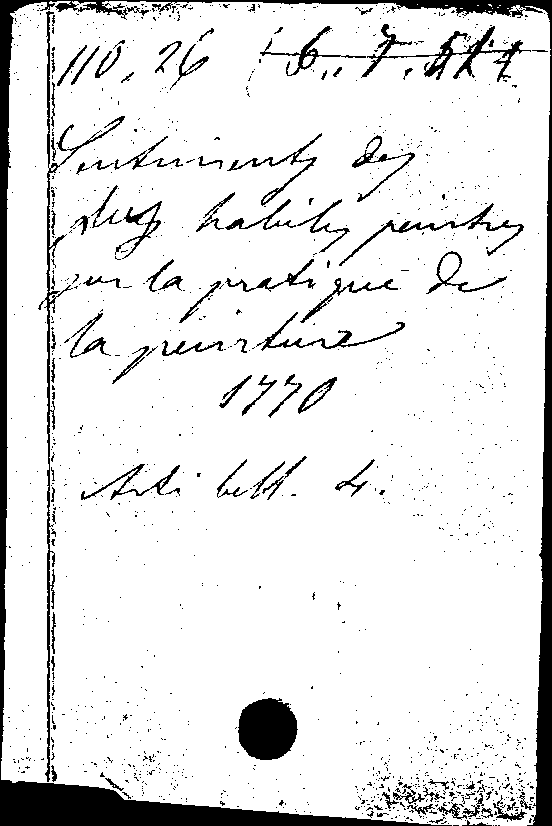 110. 26
Sentiments des
plus habiles peintres
sur la pratique de
la peinture
1770
Arti bell. 4.